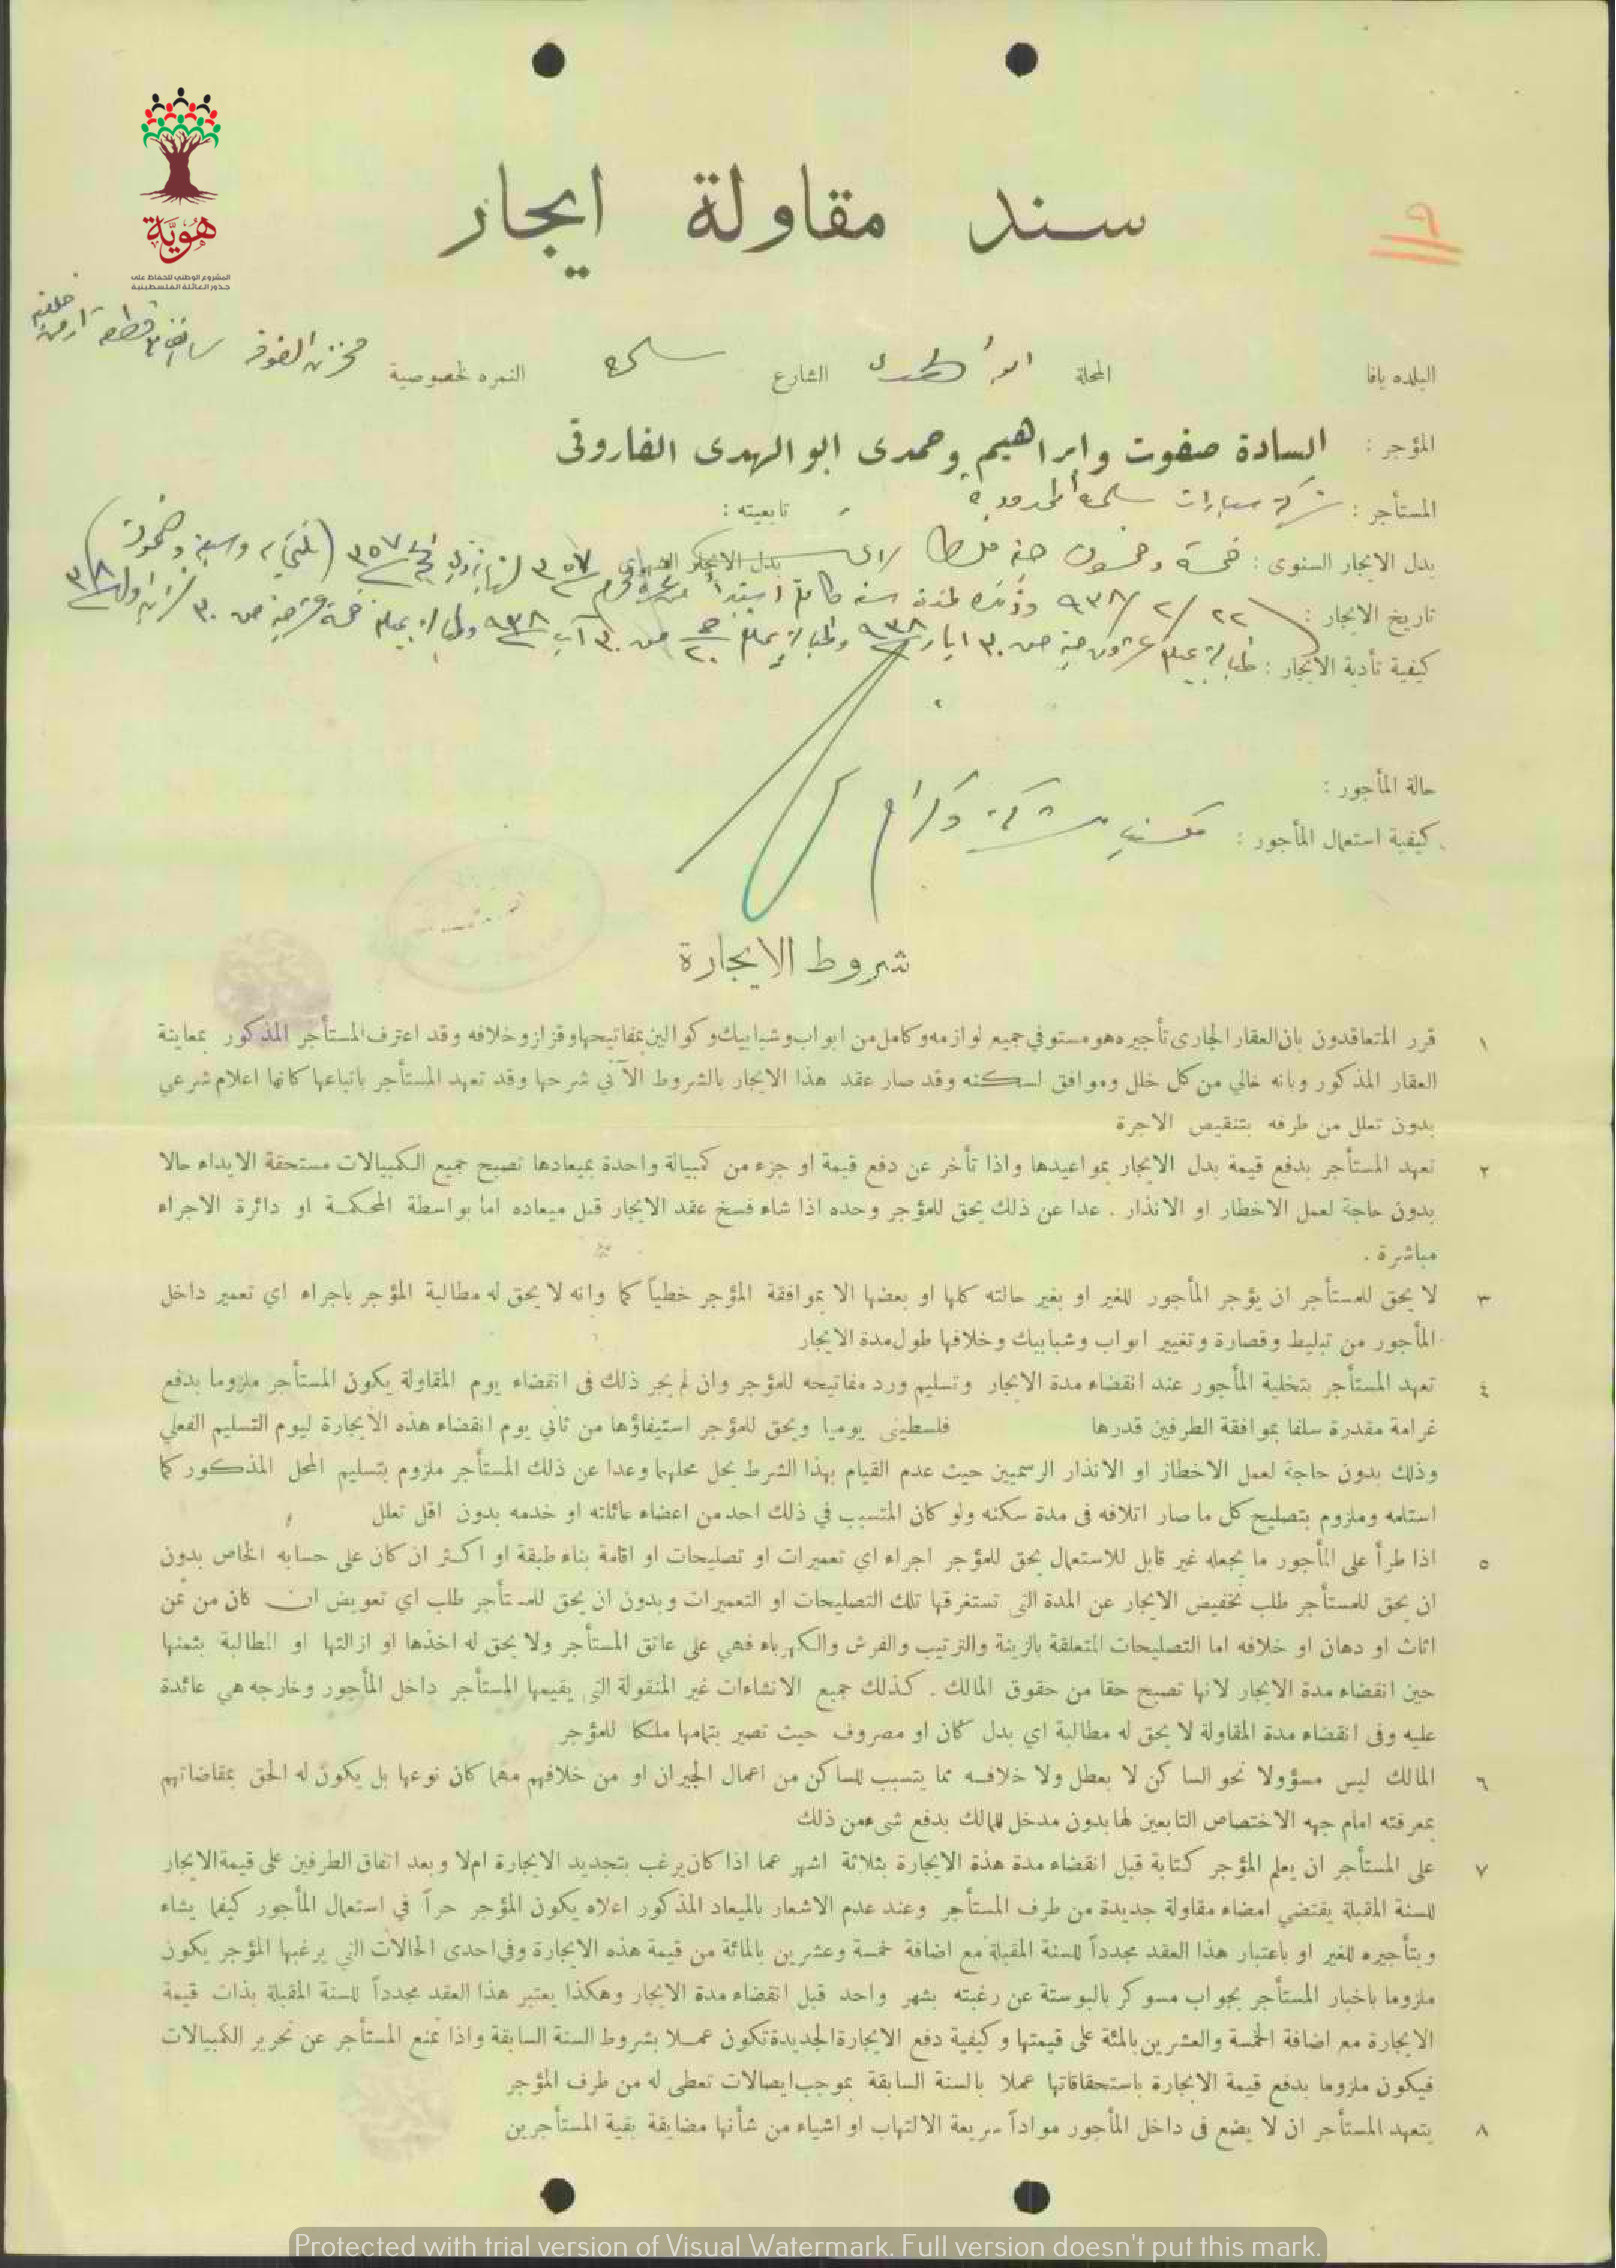 هوية
المشروع الوطني للحفاظ على
جذور العائلة الفلسطينية
٩
سند مقاولة ايجار
البلده يافا المحلة الشارع سلمه النمره الخصوصية
المؤجر : السادة صفوت وابراهيم وحمدى ابو الهدى الفاروقى
المستأجر : شركة سيارات سلمه المحدودة تابعيته :
بدل الايجار السنوى : خمسة وخمسون جنيه بدل الايجار الشهرى
تاريخ الايجار : ٢٢ / ٢ / ٩٣٨
كيفية تأدية الايجار :
حالة المأجور :
كيفية استعمال المأجور :
شروط الايجارة
١ قرر المتعاقدون بان العقار الجارى تأجيره هو مستوفي جميع لوازمه وكامل من ابواب وشبابيك وكوالين بمفاتيحها وقزاز وخلافه وقد اعترف المستأجر المذكور بمعاينة
العقار المذكور وبانه خالي من كل خلل وموافق لسكنه وقد صار عقد هذا الايجار بالشروط الآتي شرحها وقد تعهد المستأجر باتباعها كانها اعلام شرعي
بدون تعلل من طرفه بتنقيص الاجرة
٢ تعهد المستأجر بدفع قيمة بدل الايجار بمواعيدها واذا تأخر عن دفع قيمة او جزء من كمبيالة واحدة بميعادها تصبح جميع الكمبيالات مستحقة الايداء حالا
بدون حاجة لعمل الاخطار او الانذار . عدا عن ذلك يحق للمؤجر وحده اذا شاء فسخ عقد الايجار قبل ميعاده اما بواسطة المحكمة او دائرة الاجراء
مباشرة .
٣ لا يحق للمستأجر ان يؤجر المأجور للغير او بغير حالته كلها او بعضها الا بموافقة المؤجر خطياً كما وانه لا يحق له مطالبة المؤجر باجراء اي تعمير داخل
المأجور من تبليط وقصارة وتغيير ابواب وشبابيك وخلافها طول مدة الايجار
٤ تعهد المستأجر بتخلية المأجور عند انقضاء مدة الايجار وتسليم ورد مفاتيحه للمؤجر وان لم يجر ذلك فى انقضاء يوم المقاولة يكون المستأجر ملزوما بدفع
غرامة مقدرة سلفا بموافقة الطرفين قدرها فلسطينى يوميا ويحق للمؤجر استيفاؤها من ثاني يوم انقضاء هذه الايجارة ليوم التسليم الفعلي
وذلك بدون حاجة لعمل الاخطار او الانذار الرسميين حيث عدم القيام بهذا الشرط يحل محلهما وعدا عن ذلك المستأجر ملزوم بتسليم المحل المذكور كما
استلمه وملزوم بتصليح كل ما صار اتلافه فى مدة سكنه ولو كان المتسبب في ذلك احد من اعضاء عائلته او خدمه بدون اقل تعلل
٥ اذا طرأ على المأجور ما يجعله غير قابل للاستعمال يحق للمؤجر اجراء اي تعميرات او تصليحات او اقامة بناء طبقة او اكثر ان كان على حسابه الخاص بدون
ان يحق للمستأجر طلب تخفيض الايجار عن المدة التى تستغرقها تلك التصليحات او التعميرات وبدون ان يحق للمستأجر طلب اي تعويض ان كان من ثمن
اثاث او دهان او خلافه اما التصليحات المتعلقة بالزينة والترتيب والفرش والكهرباء فهي على عاتق المستأجر ولا يحق له اخذها او ازالتها او المطالبة بثمنها
حين انقضاء مدة الايجار لانها تصبح حقا من حقوق المالك . كذلك جميع الانشاءات غير المنقولة التي يقيمها المستأجر داخل المأجور وخارجه هي عائدة
عليه وفى انقضاء مدة المقاولة لا يحق له مطالبة اي بدل كان او مصروف حيث تصير بتمامها ملكا للمؤجر
٦ المالك ليس مسؤولا نحو الساكن لا بعطل ولا خلافه مما يتسبب للساكن من اعمال الجيران او من خلافهم مهما كان نوعها بل يكون له الحق بمقاضاتهم
بمعرفته امام جهه الاختصاص التابعين لها بدون مدخل للمالك بدفع شىء من ذلك
٧ على المستأجر ان يعلم المؤجر كتابة قبل انقضاء مدة هذة الايجارة بثلاثة اشهر عما اذا كان يرغب بتجديد الايجارة ام لا وبعد اتفاق الطرفين على قيمة الايجار
للسنة المقبلة يقتضي امضاء مقاولة جديدة من طرف المستأجر وعند عدم الاشعار بالميعاد المذكور اعلاه يكون المؤجر حراً في استعمال المأجور كيفما يشاء
وبتأجيره للغير او باعتبار هذا العقد مجدداً للسنة المقبلة مع اضافة خمسة وعشرين بالمائة من قيمة هذه الايجارة وفي احدى الحالات التي يرغبها المؤجر يكون
ملزوما باخبار المستأجر بجواب مسوكر بالبوستة عن رغبته بشهر واحد قبل انقضاء مدة الايجار وهكذا يعتبر هذا العقد مجدداً للسنة المقبلة بذات قيمة
الايجارة مع اضافة الخمسة والعشرين بالمئة على قيمتها وكيفية دفع الايجارة الجديدة تكون عملا بشروط السنة السابقة واذا تمنع المستأجر عن تحرير الكمبيالات
فيكون ملزوما بدفع قيمة الايجارة باستحقاقاتها عملا بالسنة السابقة بموجب ايصالات تعطى له من طرف المؤجر
٨ يتعهد المستأجر ان لا يضع فى داخل المأجور مواداً سريعة الالتهاب او اشياء من شأنها مضايقة بقية المستأجرين
Protected with trial version of Visual Watermark. Full version doesn't put this mark.